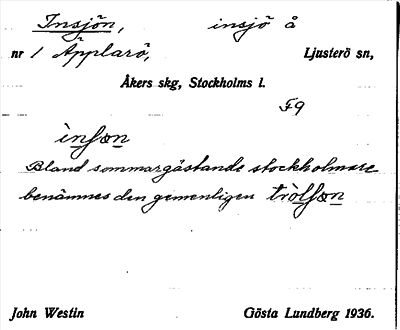 Insjön, insjö å
nr 1 Äpplarö, Ljusterö sn,
Åkers skg, Stockholms l.
F9
ìnʃøn
Bland sommargästande stockholmare
benämnes den gemenligen tròlʃøn
John Westin Gösta Lundberg 1936.